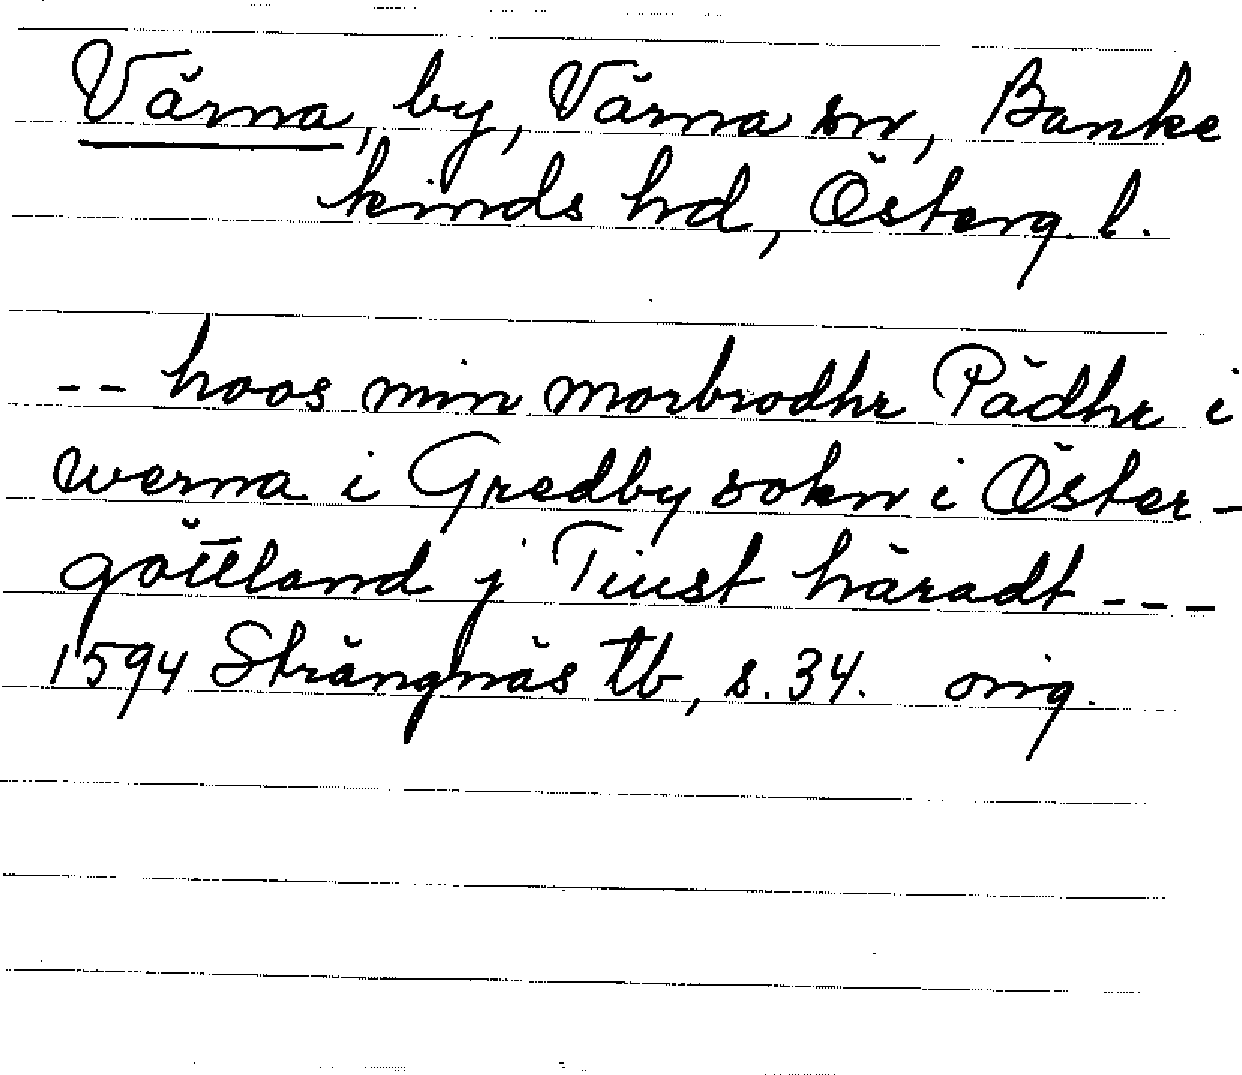 Värna, by, Värna sn, Banke
kinds hd, Österg. l.
-- hoos min morbrodhr Pädhr i
werna i Gredby sokn i Öster-
göttland j Tiust häradt ---
1594 Strängnäs tb, s. 34. orig.